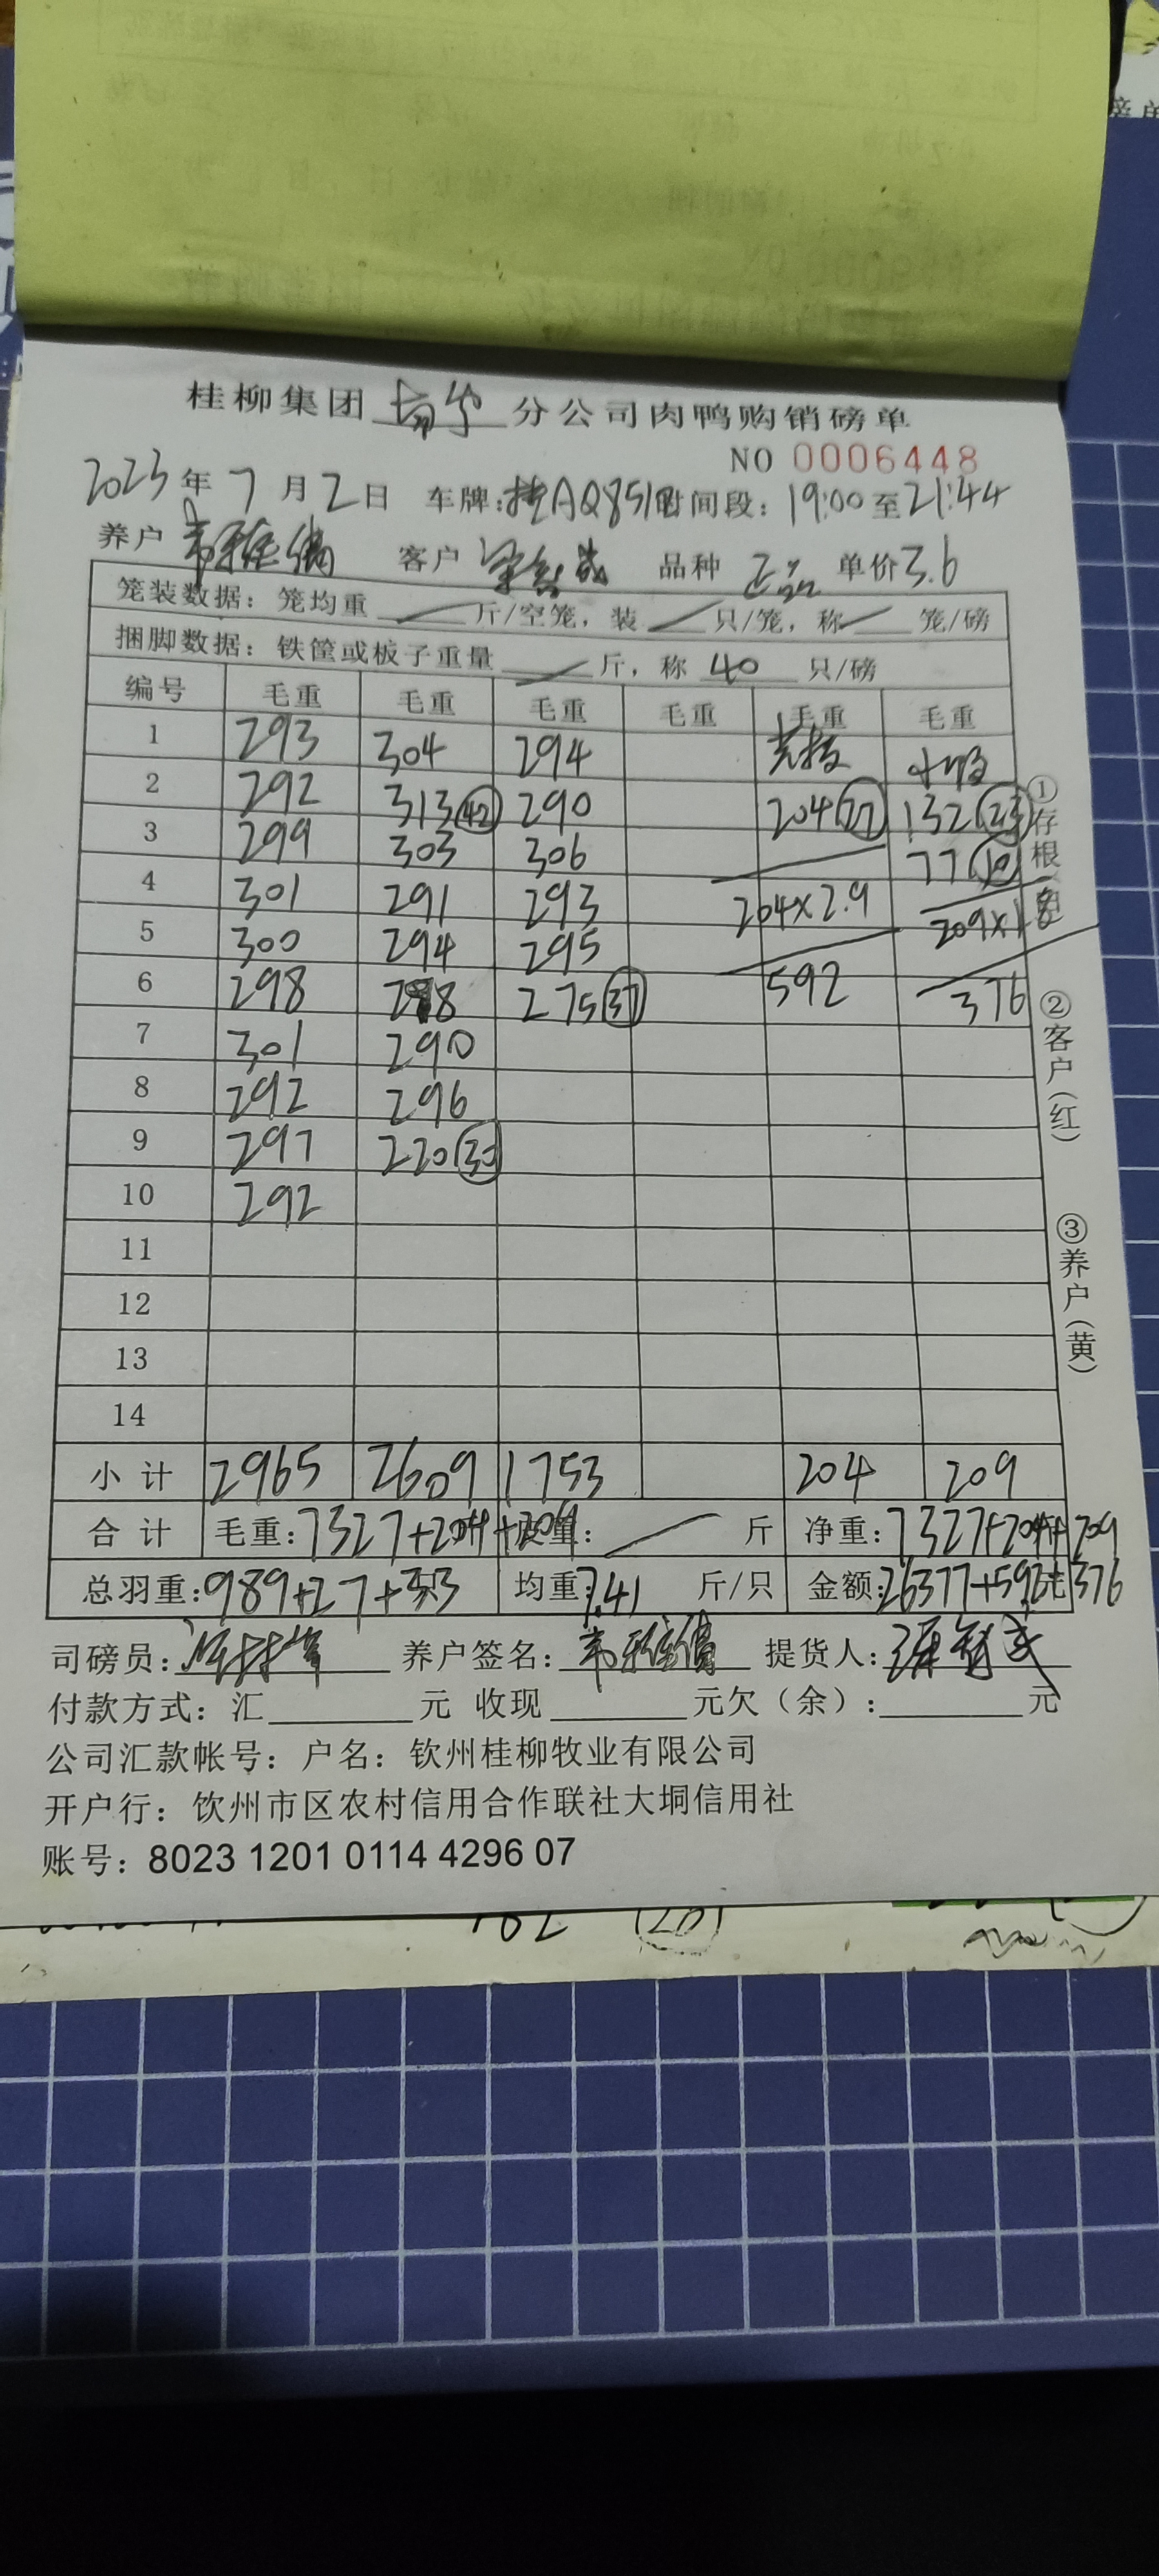 桂柳集团 南宁 分公司肉鸭购销磅单
NO 0006448
2023年7月2日 车牌:桂AQ851 时间段: 19:00至21:44
养户 韦雅倩 客户 品种 正品 单价3.6
笼装数据: 笼均重 斤/空笼, 装 只/笼, 称 笼/磅
捆脚数据: 铁筐或板子重量 斤, 称 40 只/磅
编号 毛重 毛重 毛重 毛重 毛重 毛重
1 293 304 294
2 292 313(42) 290 204(27) 132(23)
3 299 303 306 77(10)
4 301 291 293 204×2.9 209×1.8
5 300 294 295
6 298 298 275(37) 592 376
7 301 290
8 292 296
9 297 220(30)
10 292
11
12
13
14
小计 2965 2609 1753 204 209
合计 毛重:7327+204+209 皮重: 斤 净重:7327+204+209
总羽重:989+27+33 均重:7.41 斤/只 金额:26377+592+376
司磅员: 养户签名:韦雅倩 提货人:
付款方式: 汇 元 收现 元欠(余): 元
公司汇款帐号: 户名: 钦州桂柳牧业有限公司
开户行: 钦州市区农村信用合作联社大垌信用社
账号: 8023 1201 0114 4296 07
①存根
②客户(红)
③养户(黄)